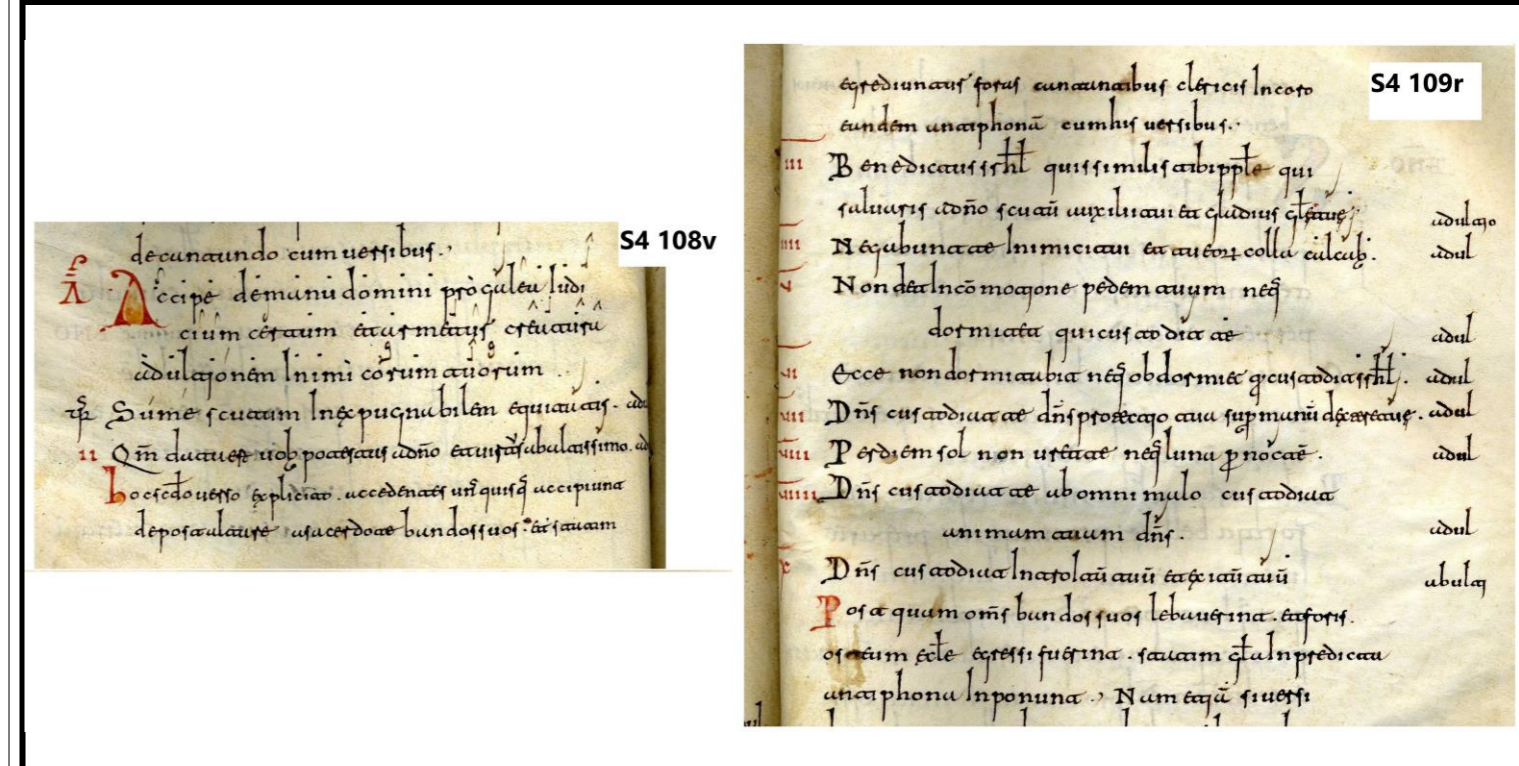 S4 108v
decantando cum uersibus.
A Accipe de manu domini pro galea Iudi
cium certum et armetur creatura
ad ultjonem Inimicorum tuorum.
Sume scutum Inexpugnabilem equitatis. ad
II Qm̄ data est uob potestas a dn̄o et uirtus ab altissimo. ad
hoc uerso explicito. accedentes unqisq accipiunt
de post altare a sacerdote bandos suos. et statim
S4 109r
egrediuntur foras cantantibus clericis In coro
eandem antiphonā cum his uersibus.
III Benedictus srhl̄ quis similis tibi pple qui
saluaris a dn̄o scutū auxilii tui et gladius gle tuę ad ultjo
IIII Negabunt te Inimici tui et tu eoꝝ colla calcab. ad ul
V Non det In cōmotjone pedem tuum neq
dormitet qui custodit te ad ul
VI Ecce non dormitabit neq obdormiet q custodit srhl̄. ad ul
VII Dn̄s custodiat te dn̄s protectjo tua sup manū dextere tuę. ad ul
VIII Per diem sol non uret te neq luna p noctē. ad ul
VIIII Dn̄s custodiat te ab omni malo custodiat
animam tuam dn̄s. ad ul
X Dn̄s custodiat Introitū tuū et exitū tuū ab ultj
Post quam om̄s bandos suos lebauerint. et foris.
ostium ecl̄e egressi fuerint. statim gl̄a In predicta
antiphona Inponunt. Nam etjā si uersi